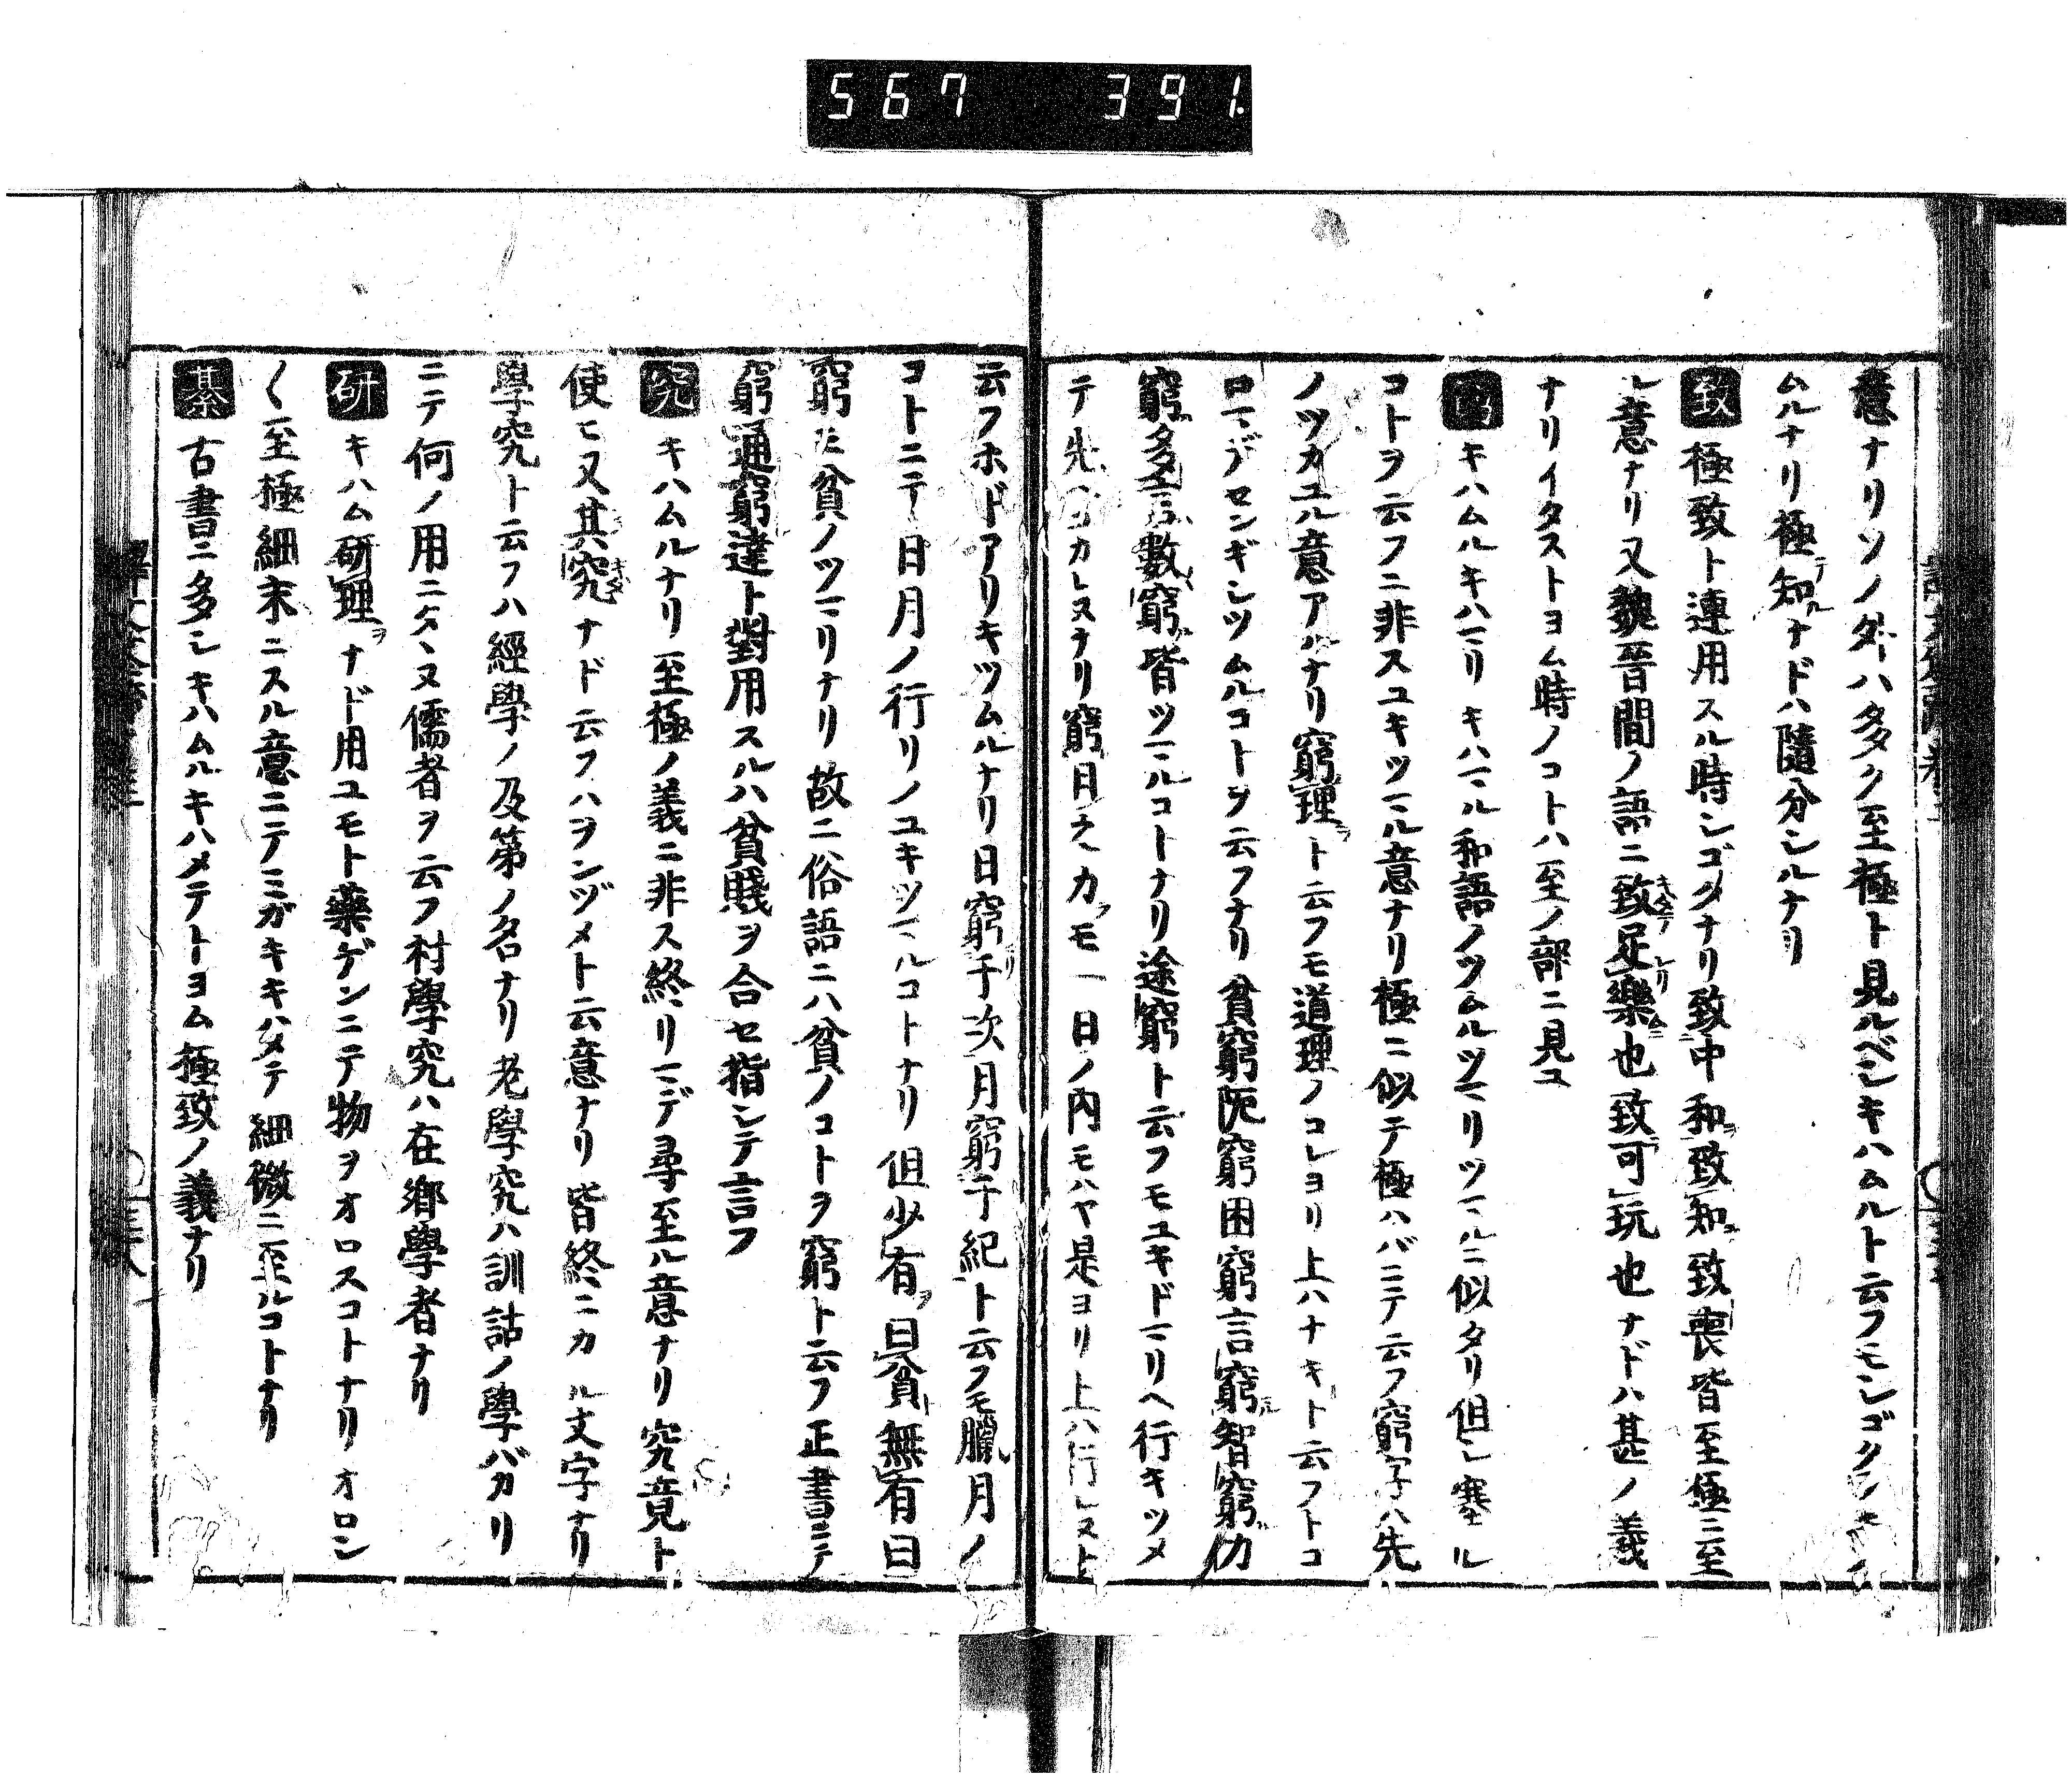 567 391
意ナリソノ外ハ多ク至極ト見ルベシキハムルト云フモシゴク
ムルナリ極知ナドハ隨分シルナリ
致 極致ト連用スル時シゴクナリ致中和致知致喪皆至極ニ至
ル意ナリ又魏晉間ノ語ニ致足樂也致可玩也ナドハ甚ノ義
ナリイタストヨム時ノコトハ至ノ部ニ見ユ
窮 キハムルキハマリキハマル和語ノツムルツマリツマルニ似タリ但シ塞ル
コトヲ云フニ非スユキツマル意ナリ極ニ似テ極ハバニテ云フ窮字ハ先
ノツカユル意アルナリ窮理ト云フモ道理ノコレヨリ上ハナキト云フトコ
ロマデセンギシツムルコトヲ云フナリ貧窮阨窮困窮言窮智窮力
窮多言數窮皆ツマルコトナリ途窮ト云フモユキドマリヘ行キツメ
テ先カレヌナリ窮日之力モ一日ノ内モハヤ是ヨリ上ハ行レヌト
云フホドアリキツムルナリ日窮于次月窮于紀ト云フモ臘月ノ
コトニテ日月ノ行リノユキツマルコトナリ但少有曰貧無有曰
窮ハ貧ノツマリナリ故ニ俗語ニハ貧ノコトヲ窮ト云フ正書ニテ
窮通窮達ト對用スルハ貧賤ヲ合セ指シテ言フ
究 キハムルナリ至極ノ義ニ非ス終リマデ尋至ル意ナリ究竟ト
使ヒ又其究ナド云フハヲシヅメト云意ナリ皆終ニカヽル文字ナリ
學究ト云フハ經學ノ及第ノ名ナリ老學究ハ訓詁ノ學バカリ
ニテ何ノ用ニタヽヌ儒者ヲ云フ村學究ハ在鄉學者ナリ
研 キハム研理ナド用ユモト藥ゲンニテ物ヲオロスコトナリオロシ
〱至極細末ニスル意ニテミガキキハメテ細微ニ至ルコトナリ
綦 古書ニ多シキハムルキハメテトヨム極致ノ義ナリ